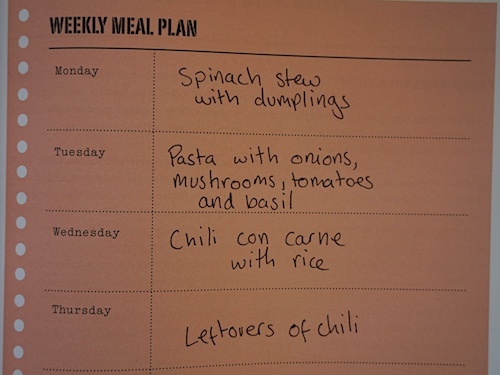 WEEKLY MEAL PLAN
Monday
Spinach stew
with dumplings
Tuesday
Pasta with onions,
mushrooms, tomatoes
and basil
Wednesday
Chili con carne
with rice
Thursday
Leftovers of chili